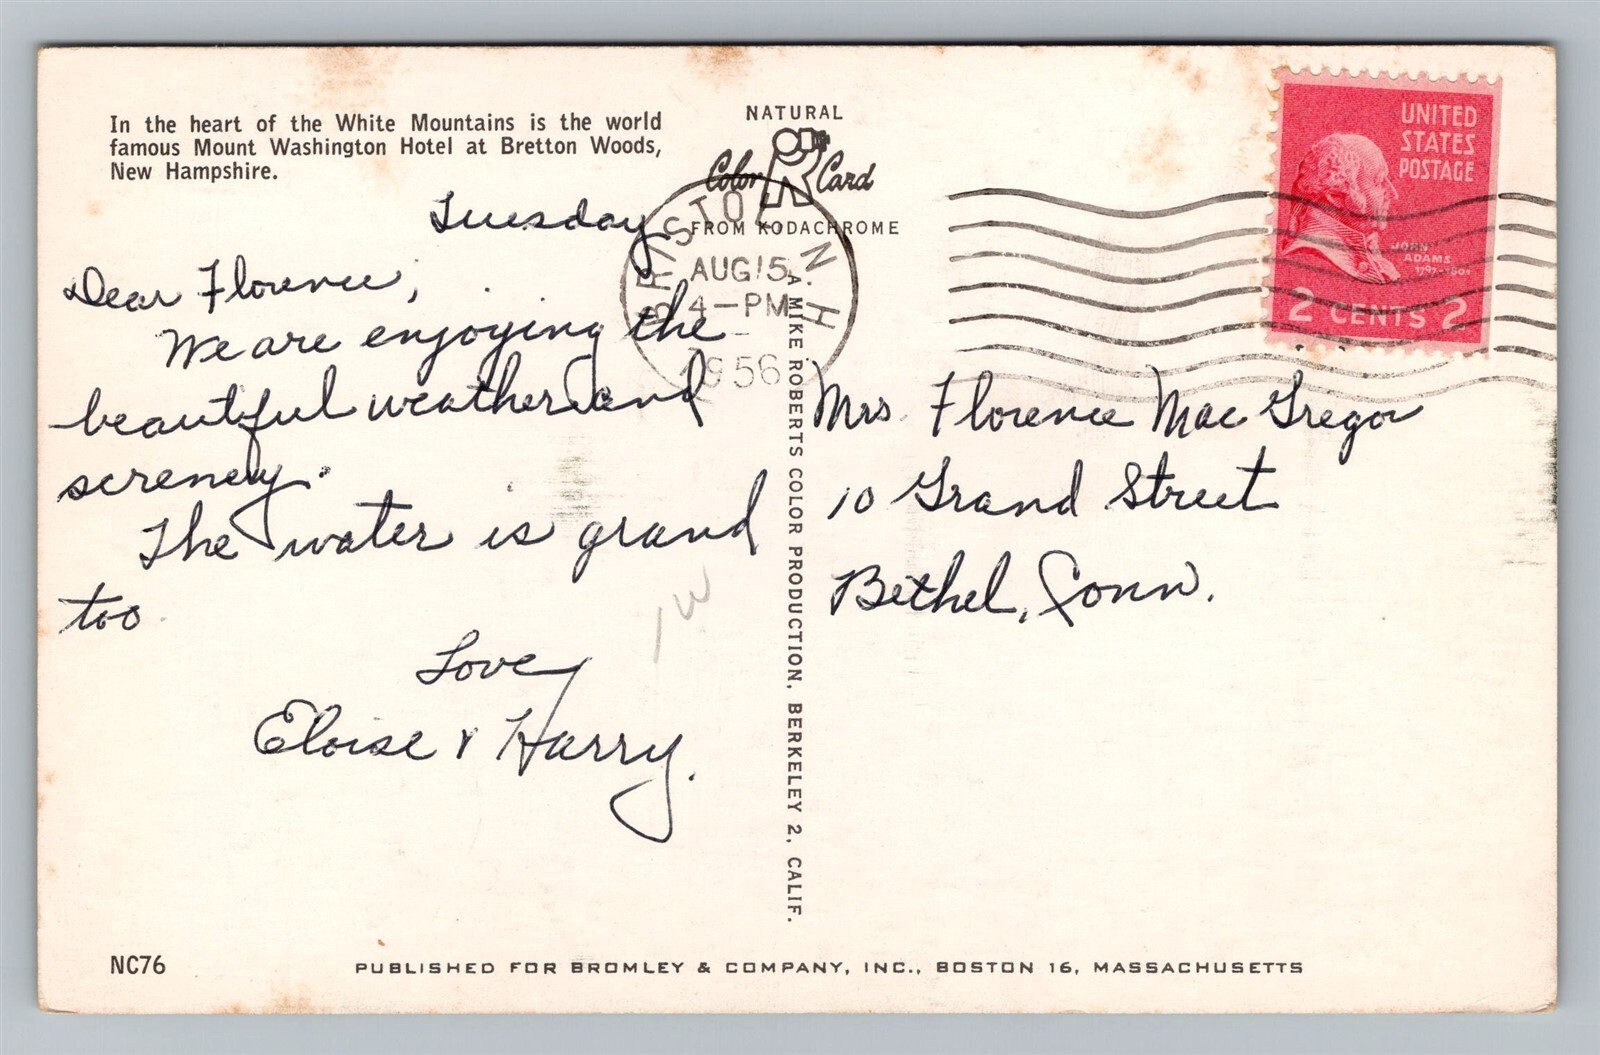 In the heart of the White Mountains is the world
famous Mount Washington Hotel at Bretton Woods,
New Hampshire.
NATURAL
Color Card
FROM KODACHROME
UNITED
STATES
POSTAGE
JOHN
ADAMS
1797-1801
2 CENTS 2
BRISTOL, N.H.
AUG 15
4-PM
1956
Tuesday
Dear Florence,
We are enjoying the
beautiful weather and
screnery.
The water is grand
too
Love,
Eloise & Harry.
Mrs. Florence MacGregor
10 Grand Street
Bethel, Conn.
A MIKE ROBERTS COLOR PRODUCTION, BERKELEY 2, CALIF.
NC76
PUBLISHED FOR BROMLEY & COMPANY, INC., BOSTON 16, MASSACHUSETTS